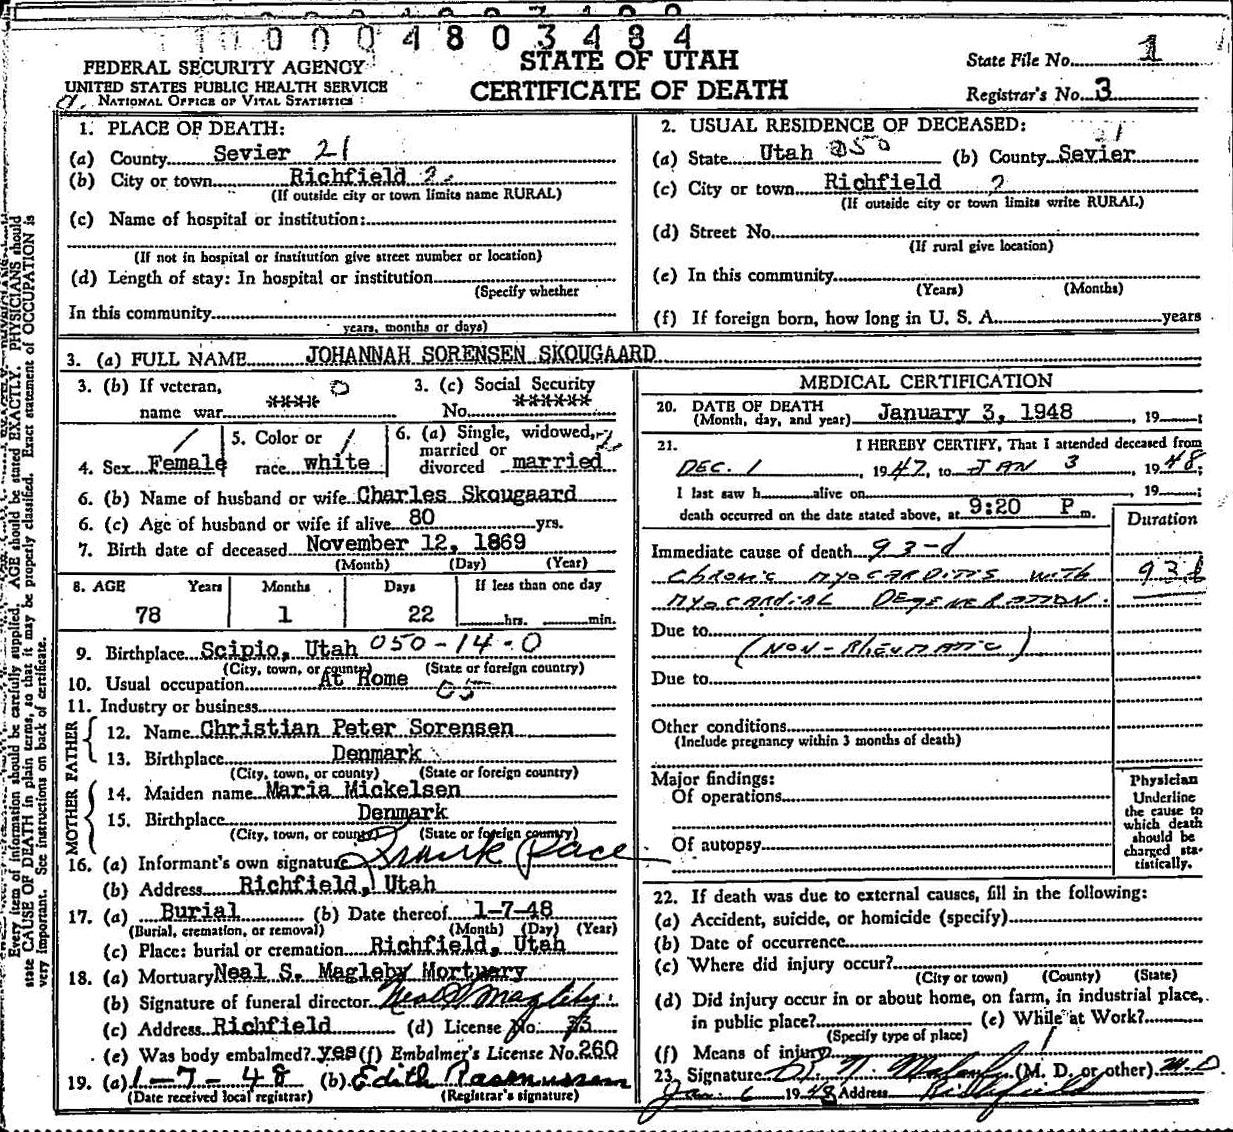 0 0 0 4 8 0 3 4 8 4
STATE OF UTAH
CERTIFICATE OF DEATH
FEDERAL SECURITY AGENCY
UNITED STATES PUBLIC HEALTH SERVICE
NATIONAL OFFICE OF VITAL STATISTICS
State File No. 1
Registrar's No. 3
1. PLACE OF DEATH:
(a) County Sevier 21
(b) City or town Richfield 2
(If outside city or town limits name RURAL)
(c) Name of hospital or institution:
(If not in hospital or institution give street number or location)
(d) Length of stay: In hospital or institution
(Specify whether
In this community
years, months or days)
2. USUAL RESIDENCE OF DECEASED:
(a) State Utah 050 (b) County Sevier
(c) City or town Richfield 2
(If outside city or town limits write RURAL)
(d) Street No.
(If rural give location)
(e) In this community
(Years) (Months)
(f) If foreign born, how long in U. S. A. years
3. (a) FULL NAME JOHANNAH SORENSEN SKOUGAARD
3. (b) If veteran, 0
name war **** 
3. (c) Social Security
No. ******
4. Sex Female
5. Color or
race white
6. (a) Single, widowed,
married or
divorced married
6. (b) Name of husband or wife Charles Skougaard
6. (c) Age of husband or wife if alive 80 yrs.
7. Birth date of deceased November 12, 1869
(Month) (Day) (Year)
8. AGE Years Months Days If less than one day
78 1 22 hrs. min.
9. Birthplace Scipio, Utah 050-14-0
(City, town, or county) (State or foreign country)
10. Usual occupation At Home 05
11. Industry or business
FATHER
12. Name Christian Peter Sorensen
13. Birthplace Denmark
(City, town, or county) (State or foreign country)
MOTHER
14. Maiden name Maria Mickelsen
15. Birthplace Denmark
(City, town, or county) (State or foreign country)
16. (a) Informant's own signature Frank Pace
(b) Address Richfield, Utah
17. (a) Burial (b) Date thereof 1-7-48
(Burial, cremation, or removal) (Month) (Day) (Year)
(c) Place: burial or cremation Richfield, Utah
18. (a) Mortuary Neal S. Magleby Mortuary
(b) Signature of funeral director Neal S Magleby
(c) Address Richfield (d) License No. 33
(e) Was body embalmed? yes (f) Embalmer's License No. 260
19. (a) 1-7-48 (b) Edith Rasmussen
(Date received local registrar) (Registrar's signature)
MEDICAL CERTIFICATION
20. DATE OF DEATH
(Month, day, and year) January 3, 1948 19
21. I HEREBY CERTIFY, That I attended deceased from
DEC. 1 1947, to JAN 3, 1948;
I last saw h alive on , 19 ;
death occurred on the date stated above, at 9:20 P m.
Duration
Immediate cause of death 93-d
CHRONIC MYOCARDITIS WITH 93d
MYOCARDIAL DEGENERATION.
Due to
(NON-RHEUMATIC)
Due to
Other conditions
(Include pregnancy within 3 months of death)
Major findings:
Of operations
Of autopsy
Physician
Underline
the cause to
which death
should be
charged sta-
tistically.
22. If death was due to external causes, fill in the following:
(a) Accident, suicide, or homicide (specify)
(b) Date of occurrence
(c) Where did injury occur?
(City or town) (County) (State)
(d) Did injury occur in or about home, on farm, in industrial place,
in public place? (e) While at Work?
(Specify type of place)
(f) Means of injury
23. Signature (M. D. or other) M.D.
Jan. 6 1948 Address Richfield
Every item of information should be carefully supplied. AGE should be stated EXACTLY. PHYSICIANS should
state CAUSE OF DEATH in plain terms, so that it may be properly classified. Exact statement of OCCUPATION is
very important. See instructions on back of certificate.